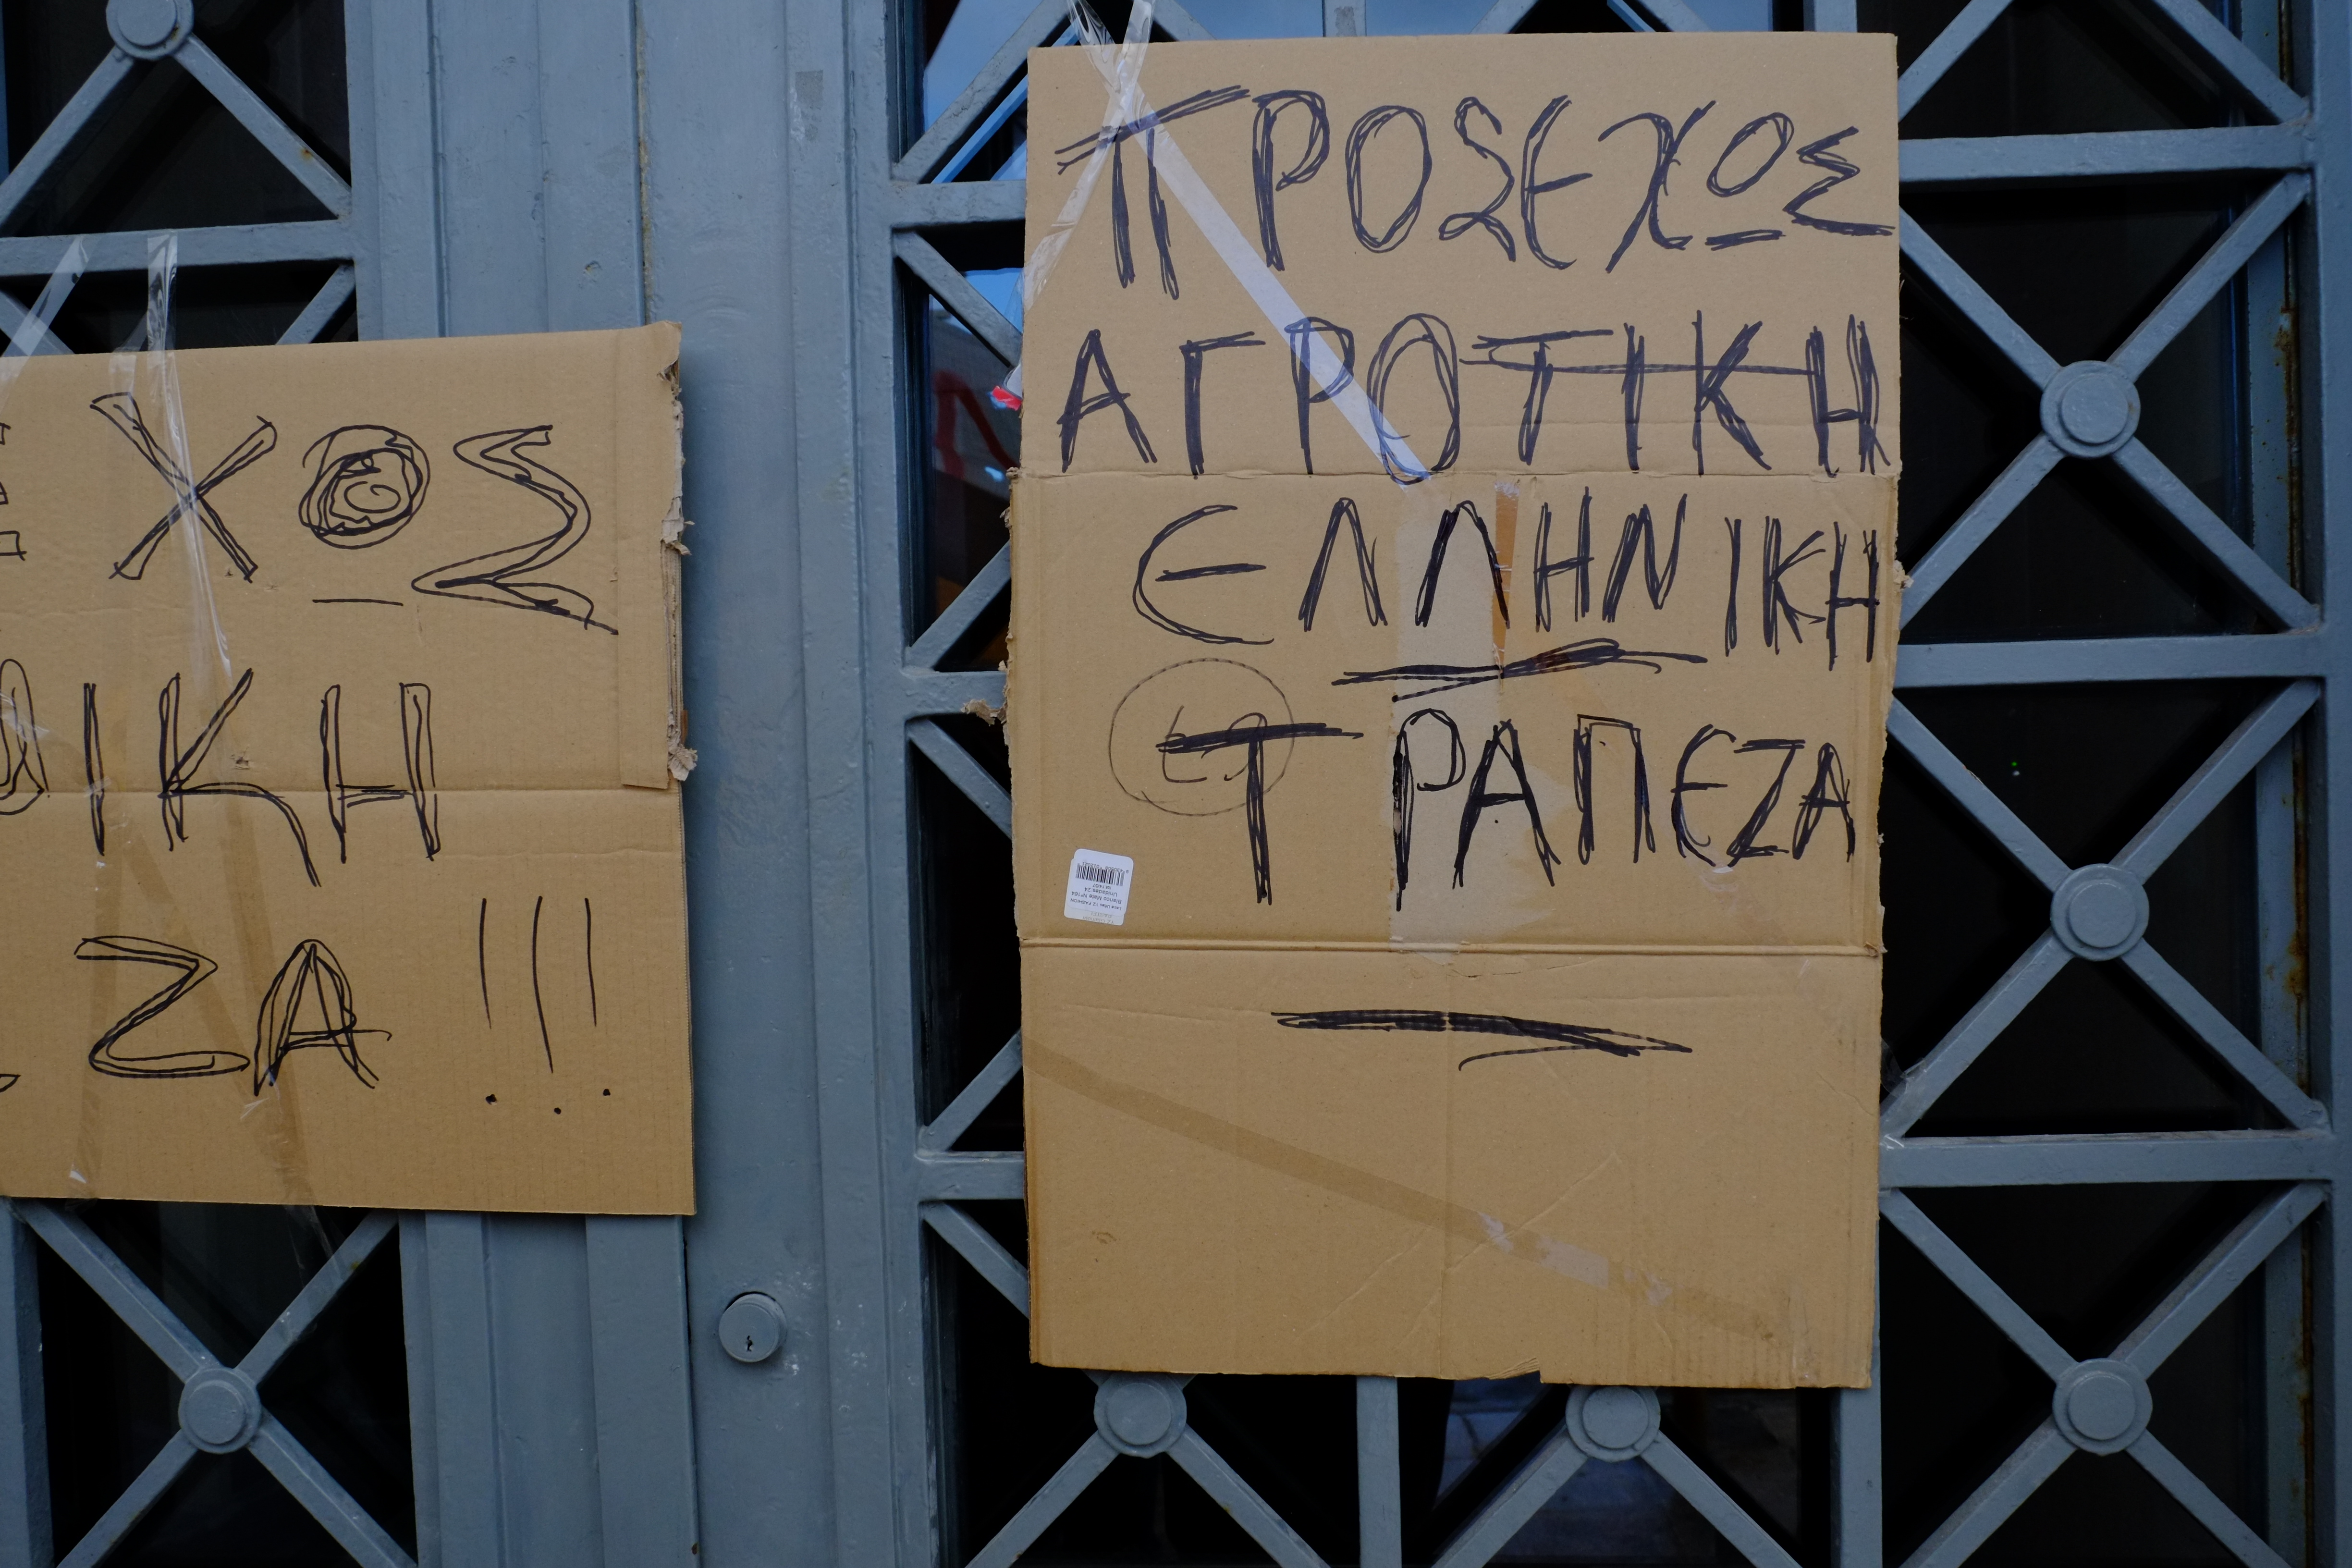 ΧΟΣ
ΙΚΗ
ΖΑ !!!
ΠΡΟΣΕΧΟΣ
ΑΓΡΟΤΙΚΗ
ΕΛΛΗΝΙΚΗ
ΤΡΑΠΕΖΑ